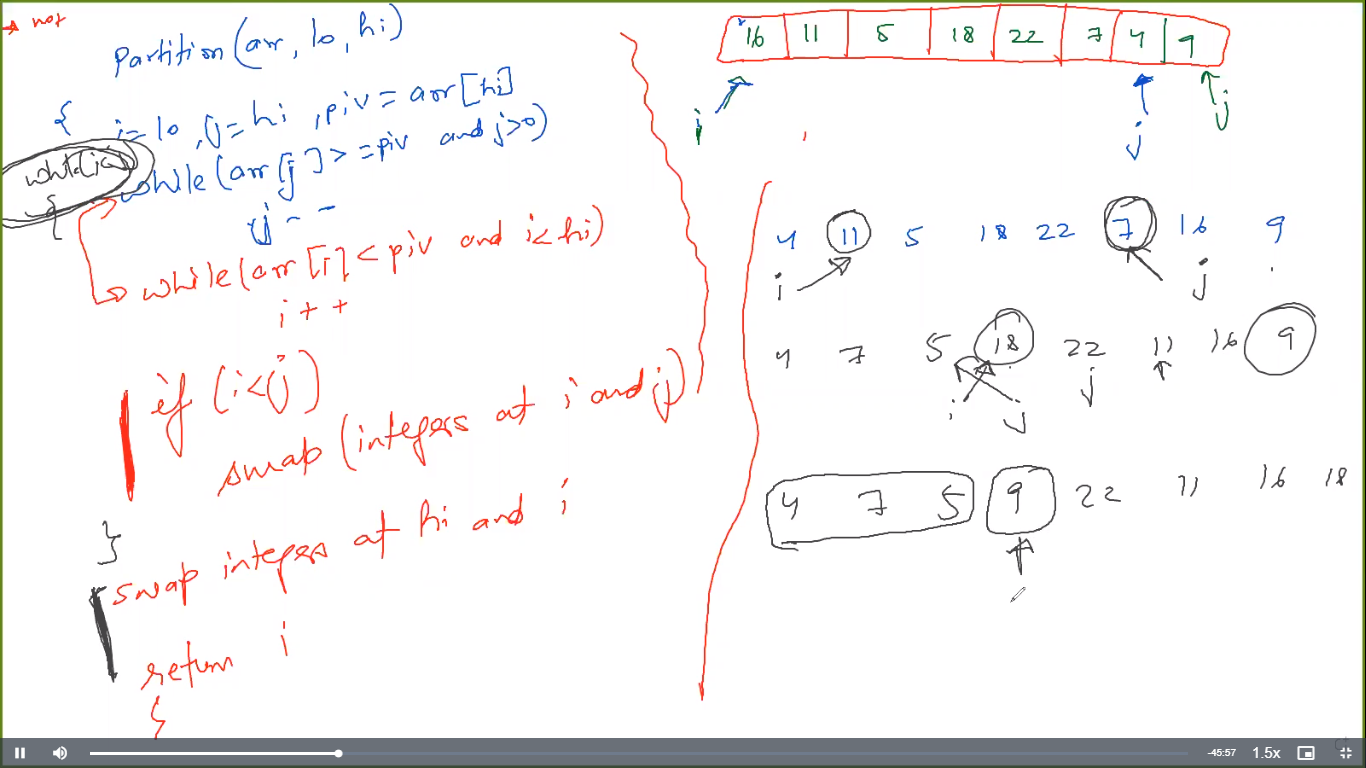 not
Partition(arr, lo, hi)
{
i=lo, j=hi, piv=arr[hi]
while(i<j)
while(arr[j]>=piv and j>0)
{
j--
while(arr[i]<piv and i<hi)
i++
if (i<j)
swap(integers at i and j)
}
swap integers at hi and i
return i
}
16 11 5 18 22 7 4 9
i j j
4 11 5 18 22 7 16 9
i j
4 7 5 18 22 11 16 9
i j j
4 7 5 9 22 11 16 18
-45:57 1.5x